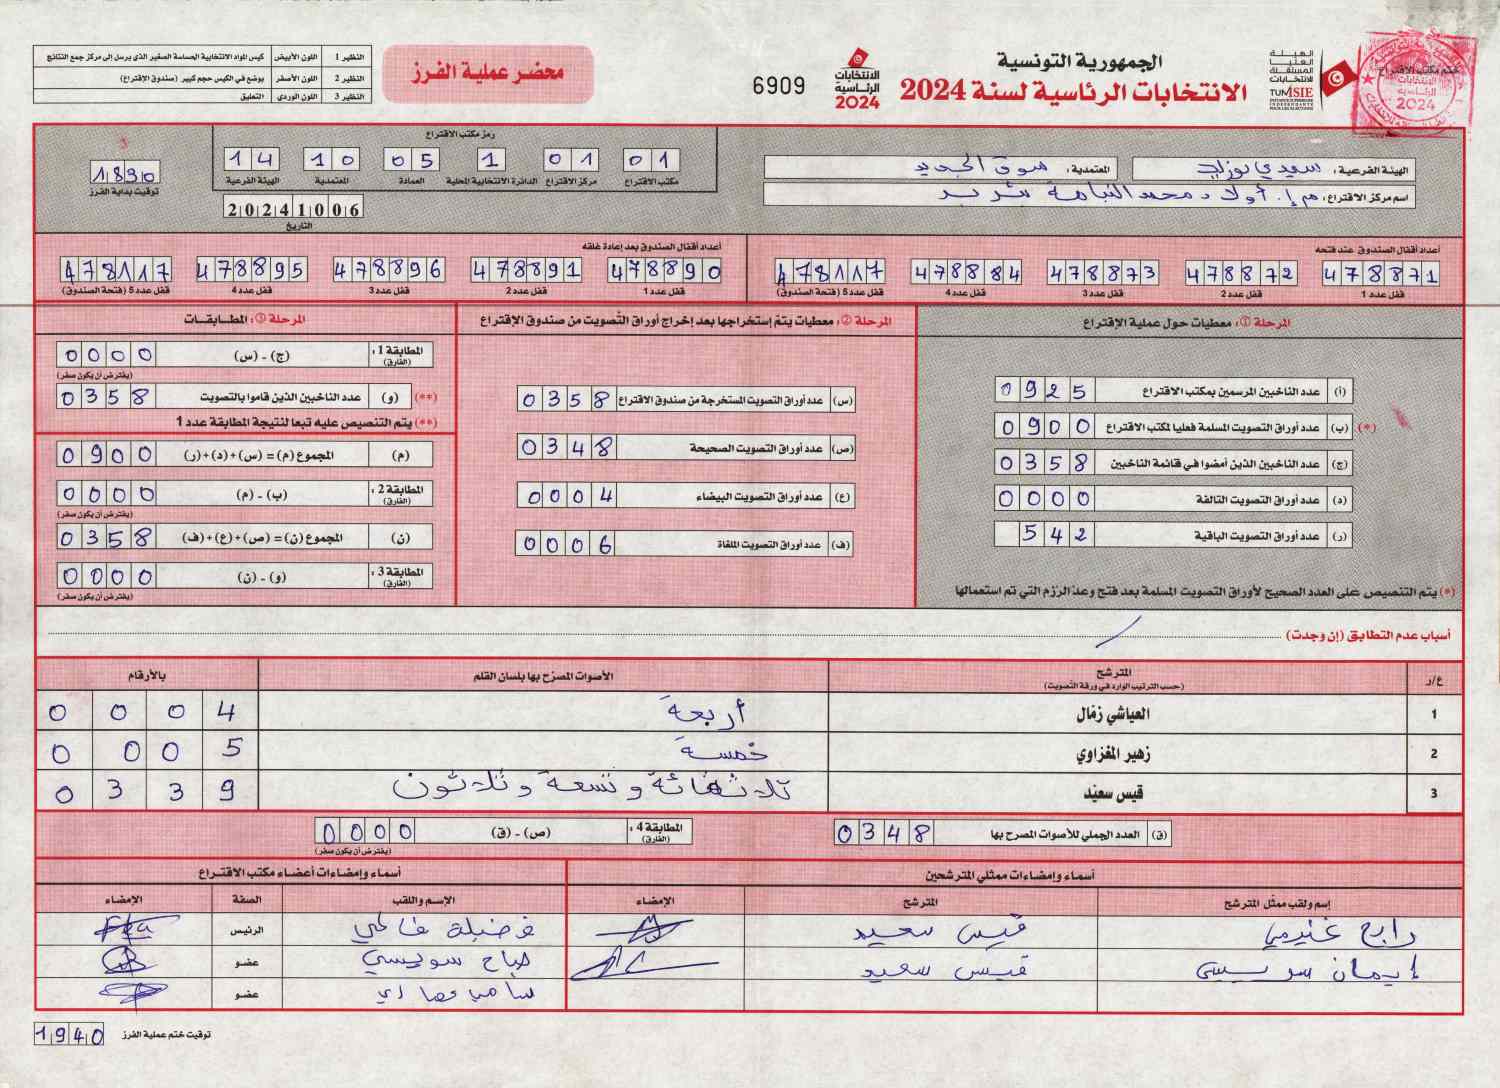 الجمهورية التونسية
الانتخابات الرئاسية لسنة 2024
الهيئة العليا المستقلة للانتخابات
TUNISIE
ختم مكتب الاقتراع
الانتخابات الرئاسية 2024
6909
محضر عملية الفرز
النظير 1 اللون الأبيض كيس المواد الانتخابية الحساسة الصغير الذي يرسل إلى مركز جمع النتائج
النظير 2 اللون الأصفر يوضع في الكيس حجم كبير (صندوق الإقتراع)
النظير 3 اللون الوردي التعليق
الهيئة الفرعية: سيدي بوزيد المعتمدية: سوق الجديد
اسم مركز الاقتراع: م.إ. أولاد محمد
رمز مكتب الاقتراع
01 01 01 05 10 14
مكتب الاقتراع مركز الاقتراع الدائرة الانتخابية المحلية العمادة المعتمدية الهيئة الفرعية
20241006
التاريخ
1830
توقيت بداية الفرز
أعداد أقفال الصندوق عند فتحه
478871 478872 478873 478884 478117
قفل عدد 1 قفل عدد 2 قفل عدد 3 قفل عدد 4 قفل عدد 5 (فتحة الصندوق)
أعداد أقفال الصندوق بعد إعادة غلقه
478890 478891 478896 478895 478117
قفل عدد 1 قفل عدد 2 قفل عدد 3 قفل عدد 4 قفل عدد 5 (فتحة الصندوق)
المرحلة ①: معطيات حول عملية الإقتراع
(أ) عدد الناخبين المرسمين بمكتب الاقتراع 0925
(*) (ب) عدد أوراق التصويت المسلمة فعليا لمكتب الاقتراع 0900
(ج) عدد الناخبين الذين أمضوا في قائمة الناخبين 0358
(د) عدد أوراق التصويت التالفة 0000
(ر) عدد أوراق التصويت الباقية 542
(*) يتم التنصيص على العدد الصحيح لأوراق التصويت المسلمة بعد فتح وعد الرزم التي تم استعمالها
المرحلة ②: معطيات يتم إستخراجها بعد إخراج أوراق التصويت من صندوق الإقتراع
(س) عدد أوراق التصويت المستخرجة من صندوق الاقتراع 0358
(ص) عدد أوراق التصويت الصحيحة 0348
(ع) عدد أوراق التصويت البيضاء 0004
(ف) عدد أوراق التصويت الملغاة 0006
المرحلة ③: المطابقات
المطابقة 1: (الفارق) (ج) - (س) 0000
(يفترض أن يكون صفر)
(**) (و) عدد الناخبين الذين قاموا بالتصويت 0358
(**) يتم التنصيص عليه تبعا لنتيجة المطابقة عدد 1
(م) المجموع (م) = (س)+(د)+(ر) 0900
المطابقة 2: (الفارق) (ب) - (م) 0000
(يفترض أن يكون صفر)
(ن) المجموع (ن) = (ص)+(ع)+(ف) 0358
المطابقة 3: (الفارق) (و) - (ن) 0000
(يفترض أن يكون صفر)
أسباب عدم التطابق (إن وجدت) /
ع/ر المترشح (حسب الترتيب الوارد في ورقة التصويت) الأصوات المصرّح بها بلسان القلم بالأرقام
1 العياشي زمّال أربعة 0004
2 زهير المغزاوي خمسة 0005
3 قيس سعيّد ثلاثمائة وتسعة وثلاثون 0339
(ق) العدد الجملي للأصوات المصرح بها 0348
المطابقة 4: (الفارق) (ص) - (ق) 0000
(يفترض أن يكون صفر)
أسماء وإمضاءات ممثلي المترشحين
إسم ولقب ممثل المترشح المترشح الإمضاء
رابح غنيمي قيس سعيد
إيمان سويسي قيس سعيد
أسماء وإمضاءات أعضاء مكتب الاقتراع
الإسم واللقب الصفة الإمضاء
الرئيس
صباح سويسي عضو
سامي عضو
توقيت ختم عملية الفرز 1940